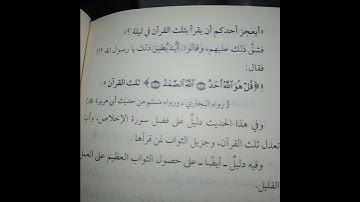 «أيعجز أحدكم أن يقرأ بثلث القرآن في ليلة ؟»
فشقَّ ذلك عليهم، وقالوا: أيُّنا يُطيق ذلك يا رسول الله ؟!
فقال:
«﴿قُلْ هُوَ ٱللَّهُ أَحَدٌ ۝ ٱللَّهُ ٱلصَّمَدُ ۝﴾ ثلث القرآن».
[رواه البخاري، ورواه مسلم من حديث أبي هريرة]
وفي هذا الحديث دليلٌ على فضل سورة الإخلاص، وأنها
تعدل ثلث القرآن، وجزيل الثواب لمن قرأها.
وفيه دليلٌ ـ أيضًا ـ على حصول الثواب العظيم على العمل
القليل.